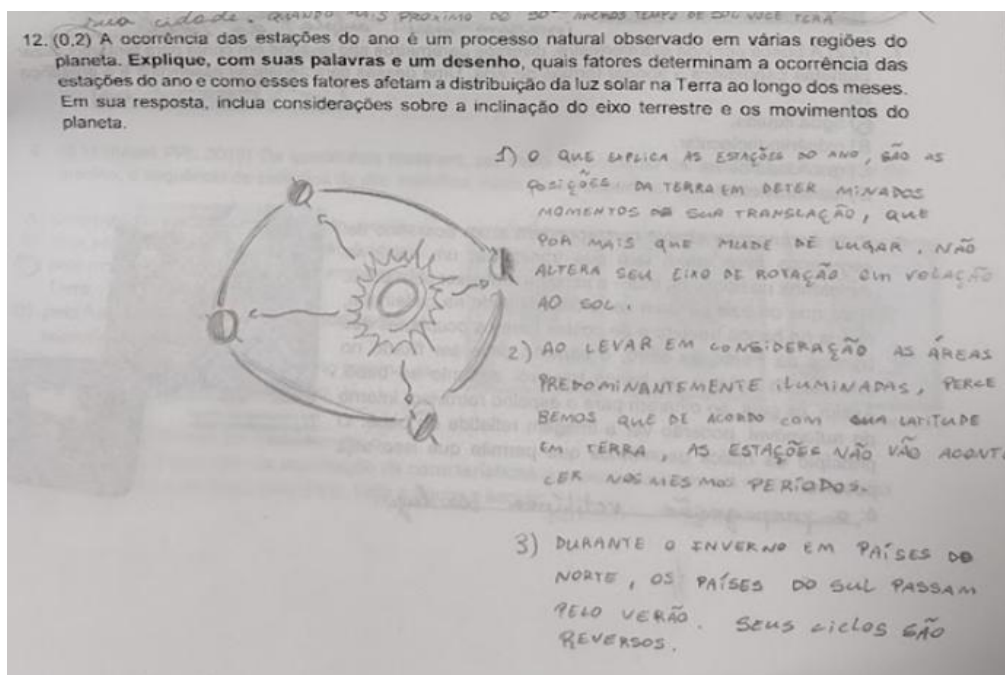 sua cidade. QUANDO MAIS PRÓXIMO DO 90° MENOS TEMPO DE SOL VOCÊ TERÁ
12. (0,2) A ocorrência das estações do ano é um processo natural observado em várias regiões do
planeta. Explique, com suas palavras e um desenho, quais fatores determinam a ocorrência das
estações do ano e como esses fatores afetam a distribuição da luz solar na Terra ao longo dos meses.
Em sua resposta, inclua considerações sobre a inclinação do eixo terrestre e os movimentos do
planeta.
1) O QUE EXPLICA AS ESTAÇÕES DO ANO, SÃO AS
POSIÇÕES DA TERRA EM DETER MINADOS
MOMENTOS DE SUA TRANSLAÇÃO, QUE
POR MAIS QUE MUDE DE LUGAR, NÃO
ALTERA SEU EIXO DE ROTAÇÃO em RELAÇÃO
AO SOL.
2) AO LEVAR EM CONSIDERAÇÃO AS ÁREAS
PREDOMINANTEMENTE ILUMINADAS, PERCE
BEMOS QUE DE ACORDO COM SUA LATITUDE
EM TERRA, AS ESTAÇÕES NÃO VÃO ACONTE
CER NOS MESMOS PERÍODOS.
3) DURANTE O INVERNO EM PAÍSES DO
NORTE, OS PAÍSES DO SUL PASSAM
PELO VERÃO. SEUS CICLOS SÃO
REVERSOS.